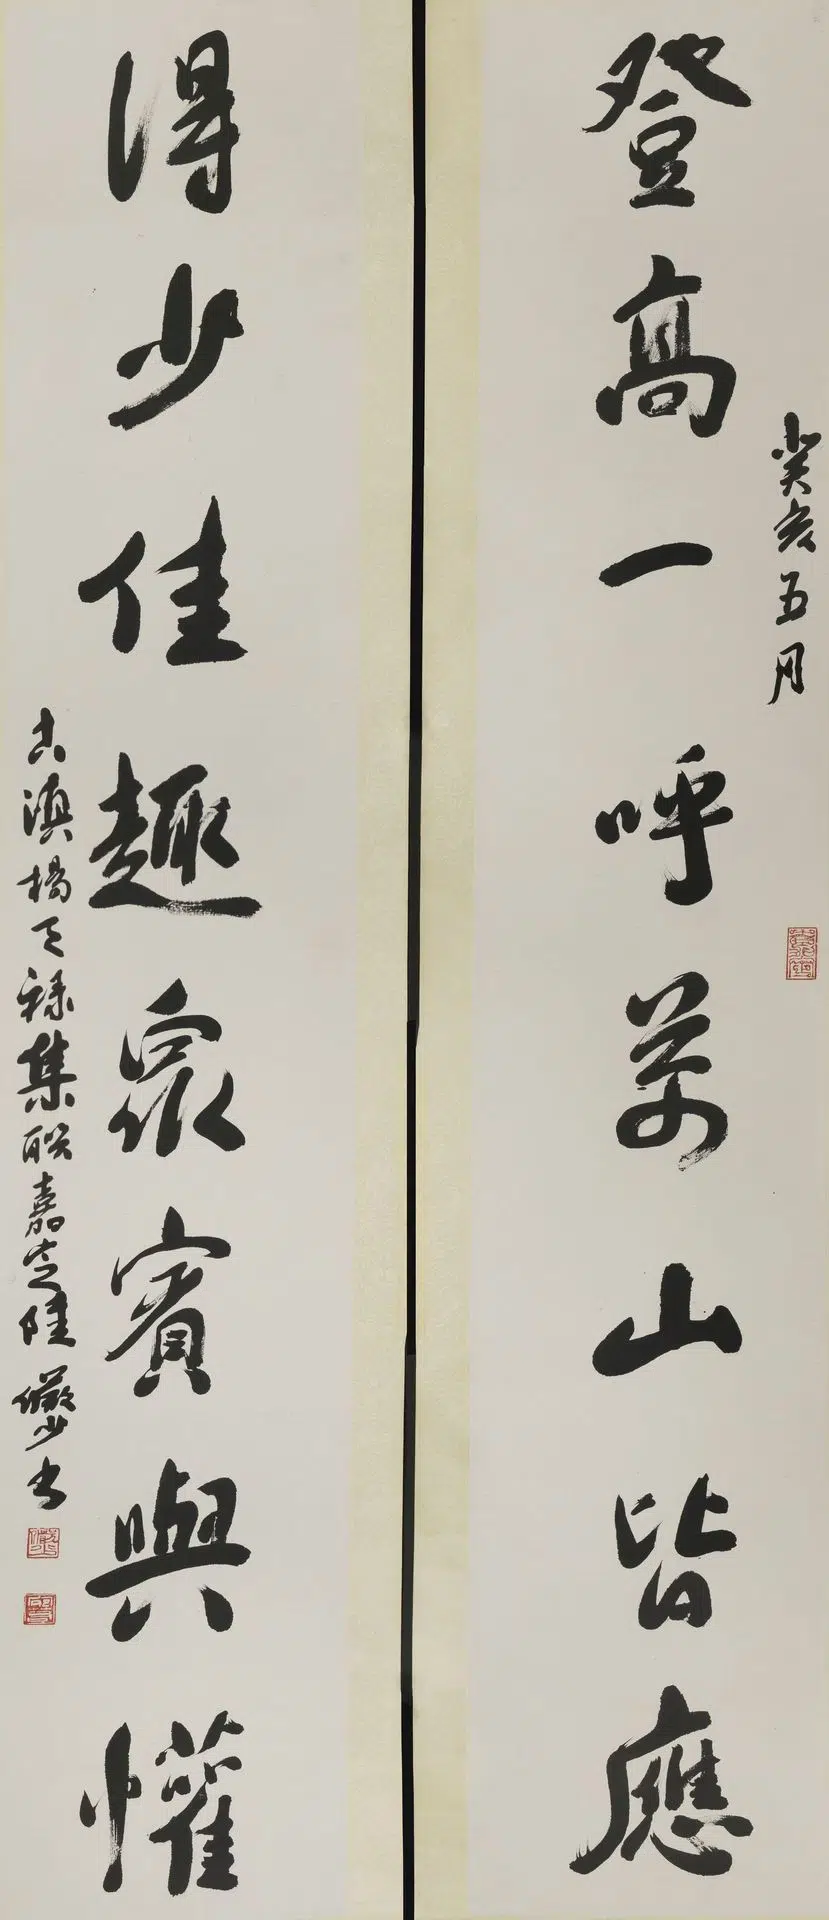 癸亥五月
登高一呼萬山皆應
得少佳趣衆賓與懽
古滇楊天祿集聯嘉定陸儼少書